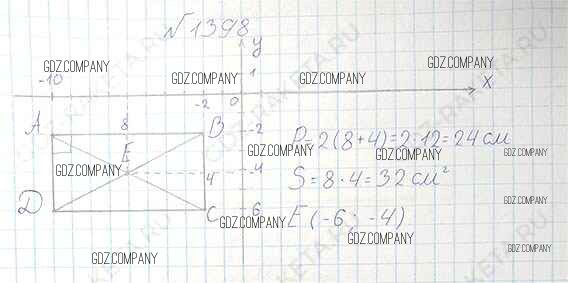 №1398
y
GDZ.COMPANY
GDZ.COMPANY
GDZ.COMPANY
GDZ.COMPANY
-10 -2 0 1 x
A 8 B -2
P=2(8+4)=2·12=24 см
GDZ.COMPANY
GDZ.COMPANY
GDZ.COMPANY
E
GDZ.COMPANY
4 -4
S=8·4=32 см²
D C -6
E(-6; -4)
GDZ.COMPANY
GDZ.COMPANY
GDZ.COMPANY
GDZ.COMPANY
GDZ.COMPANY
GDZ-RAKETA.RU